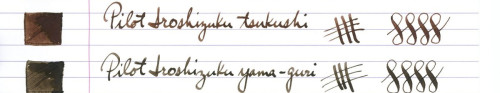 Pilot Iroshizuku tsukushi
Pilot Iroshizuku yama-guri